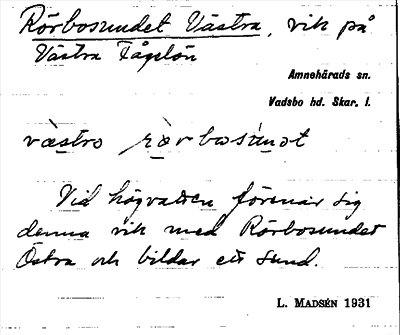 Rörbosundet Västra, vik på
Västra Fågelön
Amnehärads sn.
Vadsbo hd. Skar. l.
västro rörbosunot
Vid högvatten förenar sig
denna vik med Rörbosundet
Östra och bildar ett sund.
L. MADSÉN 1931